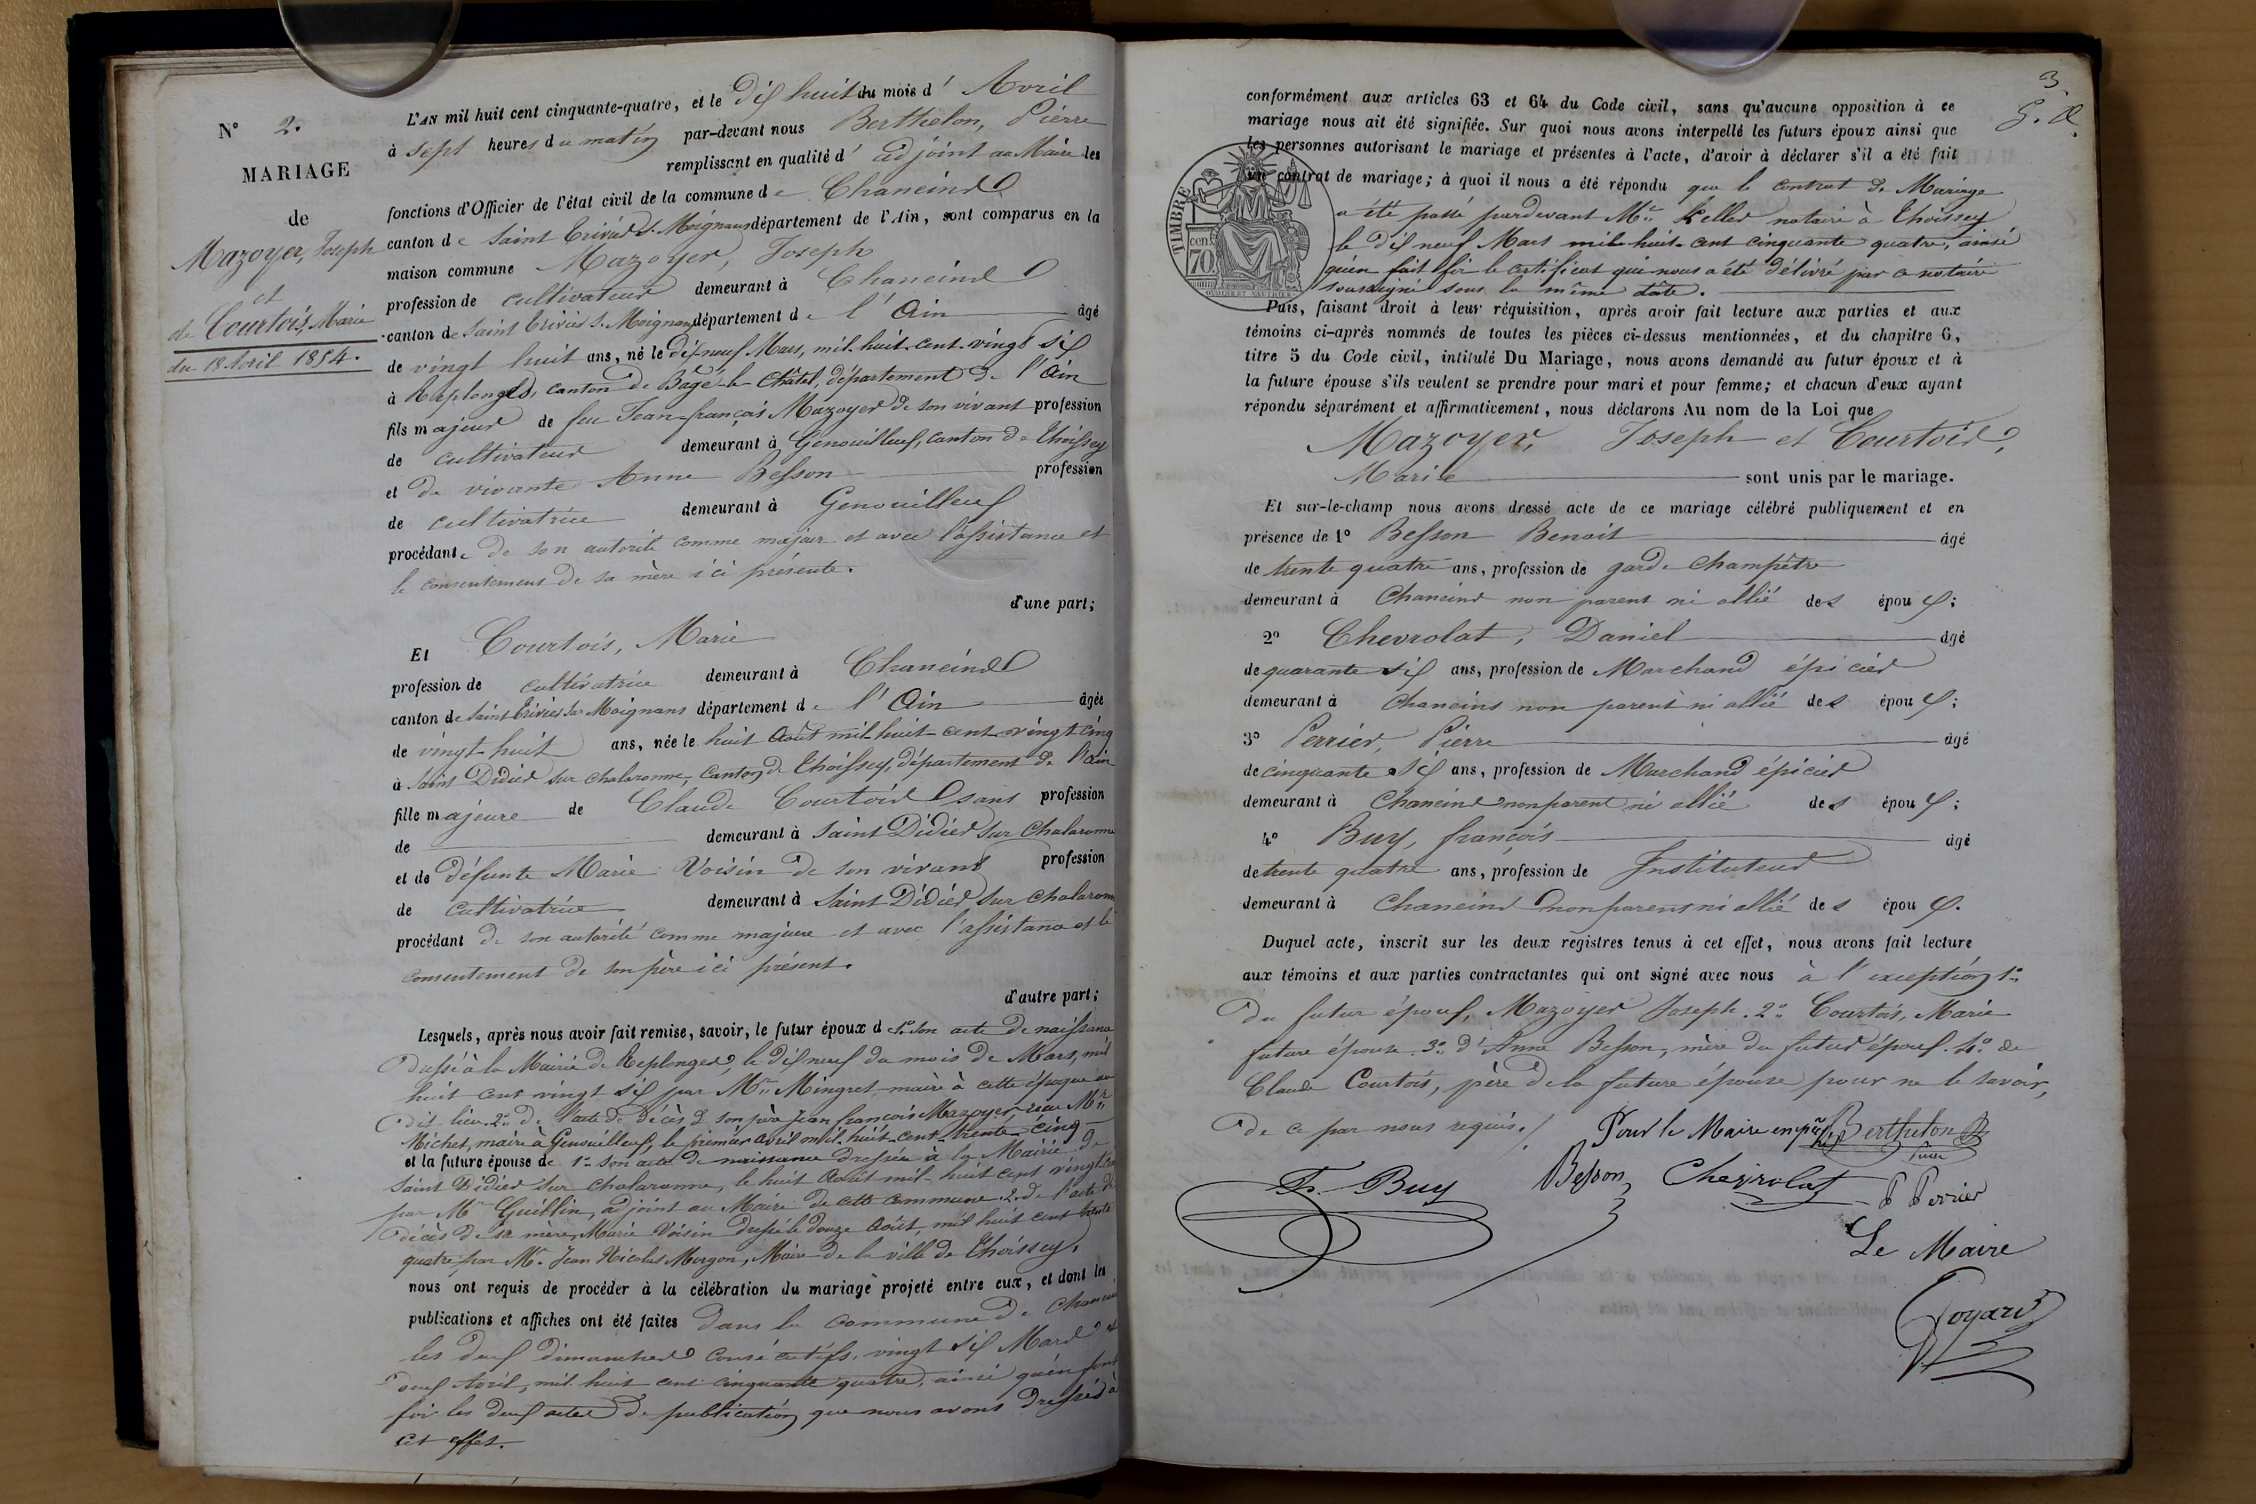 N° 2.
MARIAGE
de
Mazoyer, Joseph
et
de Courtois, Marie
du 18 Avril 1854.
L'AN mil huit cent cinquante-quatre, et le dix huit du mois d' Avril
à sept heures du matin par-devant nous Berthelon, Pierre
remplissant en qualité d' adjoint au Maire les
fonctions d'Officier de l'état civil de la commune de Chaneins
canton de Saint Trivier s. Moignans département de l'Ain, sont comparus en la
maison commune Mazoyer, Joseph
profession de cultivateur demeurant à Chaneins
canton de Saint Trivier s. Moignans département de l'Ain âgé
de vingt huit ans, né le dix-neuf Mars, mil huit cent vingt six
à Replonges, canton de Bâgé-le-Châtel, département de l'Ain
fils majeur de feu Jean-françois Mazoyer de son vivant profession
de cultivateur demeurant à Genouilleux, canton de Thoissey
et de vivante Anne Besson profession
de cultivatrice demeurant à Genouilleux
procédant de son autorité comme majeur et avec l'assistance et
le consentement de sa mère ici présente.
d'une part;
Et Courtois, Marie
profession de cultivatrice demeurant à Chaneins
canton de Saint Trivier sur Moignans département de l'Ain âgée
de vingt-huit ans, née le huit Août mil huit cent vingt cinq
à Saint Didier sur Chalaronne, Canton de Thoissey, département de l'Ain
fille majeure de Claude Courtois sans profession
de demeurant à Saint Didier sur Chalaronne
et de défunte Marie Voisin de son vivant profession
de cultivatrice demeurant à Saint Didier sur Chalaronne
procédant de son autorité comme majeure et avec l'assistance et le
consentement de son père ici présent.
d'autre part;
Lesquels, après nous avoir fait remise, savoir, le futur époux de 1° son acte de naissance
dressé à la Mairie de Replonges, le dix neuf du mois de Mars, mil
huit cent vingt six par Mr. Mingret maire à cette époque au
dit lieu. 2° de l'acte de décès de son père Jean françois Mazoyer, reçu Mr.
Michet, maire à Genouilleux, le premier avril mil huit cent trente cinq
et la future épouse de 1° son acte de naissance dressée à la Mairie de
Saint Didier sur Chalaronne, le huit Août mil huit cent vingt cinq
par Mr. Guillin, adjoint au Maire de cette commune. 2° de l'acte de
décès de sa mère, Marie Voisin dressé le douze Août, mil huit cent trente
quatre par Mr. Jean Nicolas Morgon, Maire de la ville de Thoissey,
nous ont requis de procéder à la célébration du mariage projeté entre eux, et dont les
publications et affiches ont été faites dans la commune de Chaneins
les deux dimanches consécutifs, vingt six Mars et
deux Avril, mil huit cent cinquante quatre, ainsi qu'en font
foi les deux actes de publication que nous avons dressés à
cet effet.
3.
conformément aux articles 63 et 64 du Code civil, sans qu'aucune opposition à ce
mariage nous ait été signifiée. Sur quoi nous avons interpellé les futurs époux ainsi que
les personnes autorisant le mariage et présentes à l'acte, d'avoir à déclarer s'il a été fait
un contrat de mariage; à quoi il nous a été répondu que le contrat de Mariage
a été passé pardevant Me. Keller notaire à Thoissey
le dix neuf Mars mil huit cent cinquante quatre, ainsi
qu'en fait foi le certificat qui nous a été délivré par ce notaire
soussigné sous la même date.
TIMBRE
cen.
70
Puis, faisant droit à leur réquisition, après avoir fait lecture aux parties et aux
témoins ci-après nommés de toutes les pièces ci-dessus mentionnées, et du chapitre 6,
titre 5 du Code civil, intitulé Du Mariage, nous avons demandé au futur époux et à
la future épouse s'ils veulent se prendre pour mari et pour femme; et chacun d'eux ayant
répondu séparément et affirmativement, nous déclarons Au nom de la Loi que
Mazoyer, Joseph et Courtois,
Marie sont unis par le mariage.
Et sur-le-champ nous avons dressé acte de ce mariage célébré publiquement et en
présence de 1° Besson Benoit âgé
de trente quatre ans, profession de garde champêtre
demeurant à Chaneins non parent ni allié des époux;
2° Chevrolat, Daniel âgé
de quarante six ans, profession de Marchand épicier
demeurant à Chaneins non parent ni allié des époux;
3° Perrier, Pierre âgé
de cinquante six ans, profession de Marchand épicier
demeurant à Chaneins non parent ni allié des époux;
4° Buy, françois âgé
de trente quatre ans, profession de Instituteur
demeurant à Chaneins non parent ni allié des époux.
Duquel acte, inscrit sur les deux registres tenus à cet effet, nous avons fait lecture
aux témoins et aux parties contractantes qui ont signé avec nous à l'exception 1°
du futur époux, Mazoyer Joseph. 2° Courtois, Marie
future épouse. 3° d'Anne Besson, mère du futur époux. 4° de
Claude Courtois, père de la future épouse pour ne le savoir,
de ce par nous requis./.
Pour le Maire Berthelon
Fs. Buy Besson Chevrolat P Perrier
Le Maire
Goyard